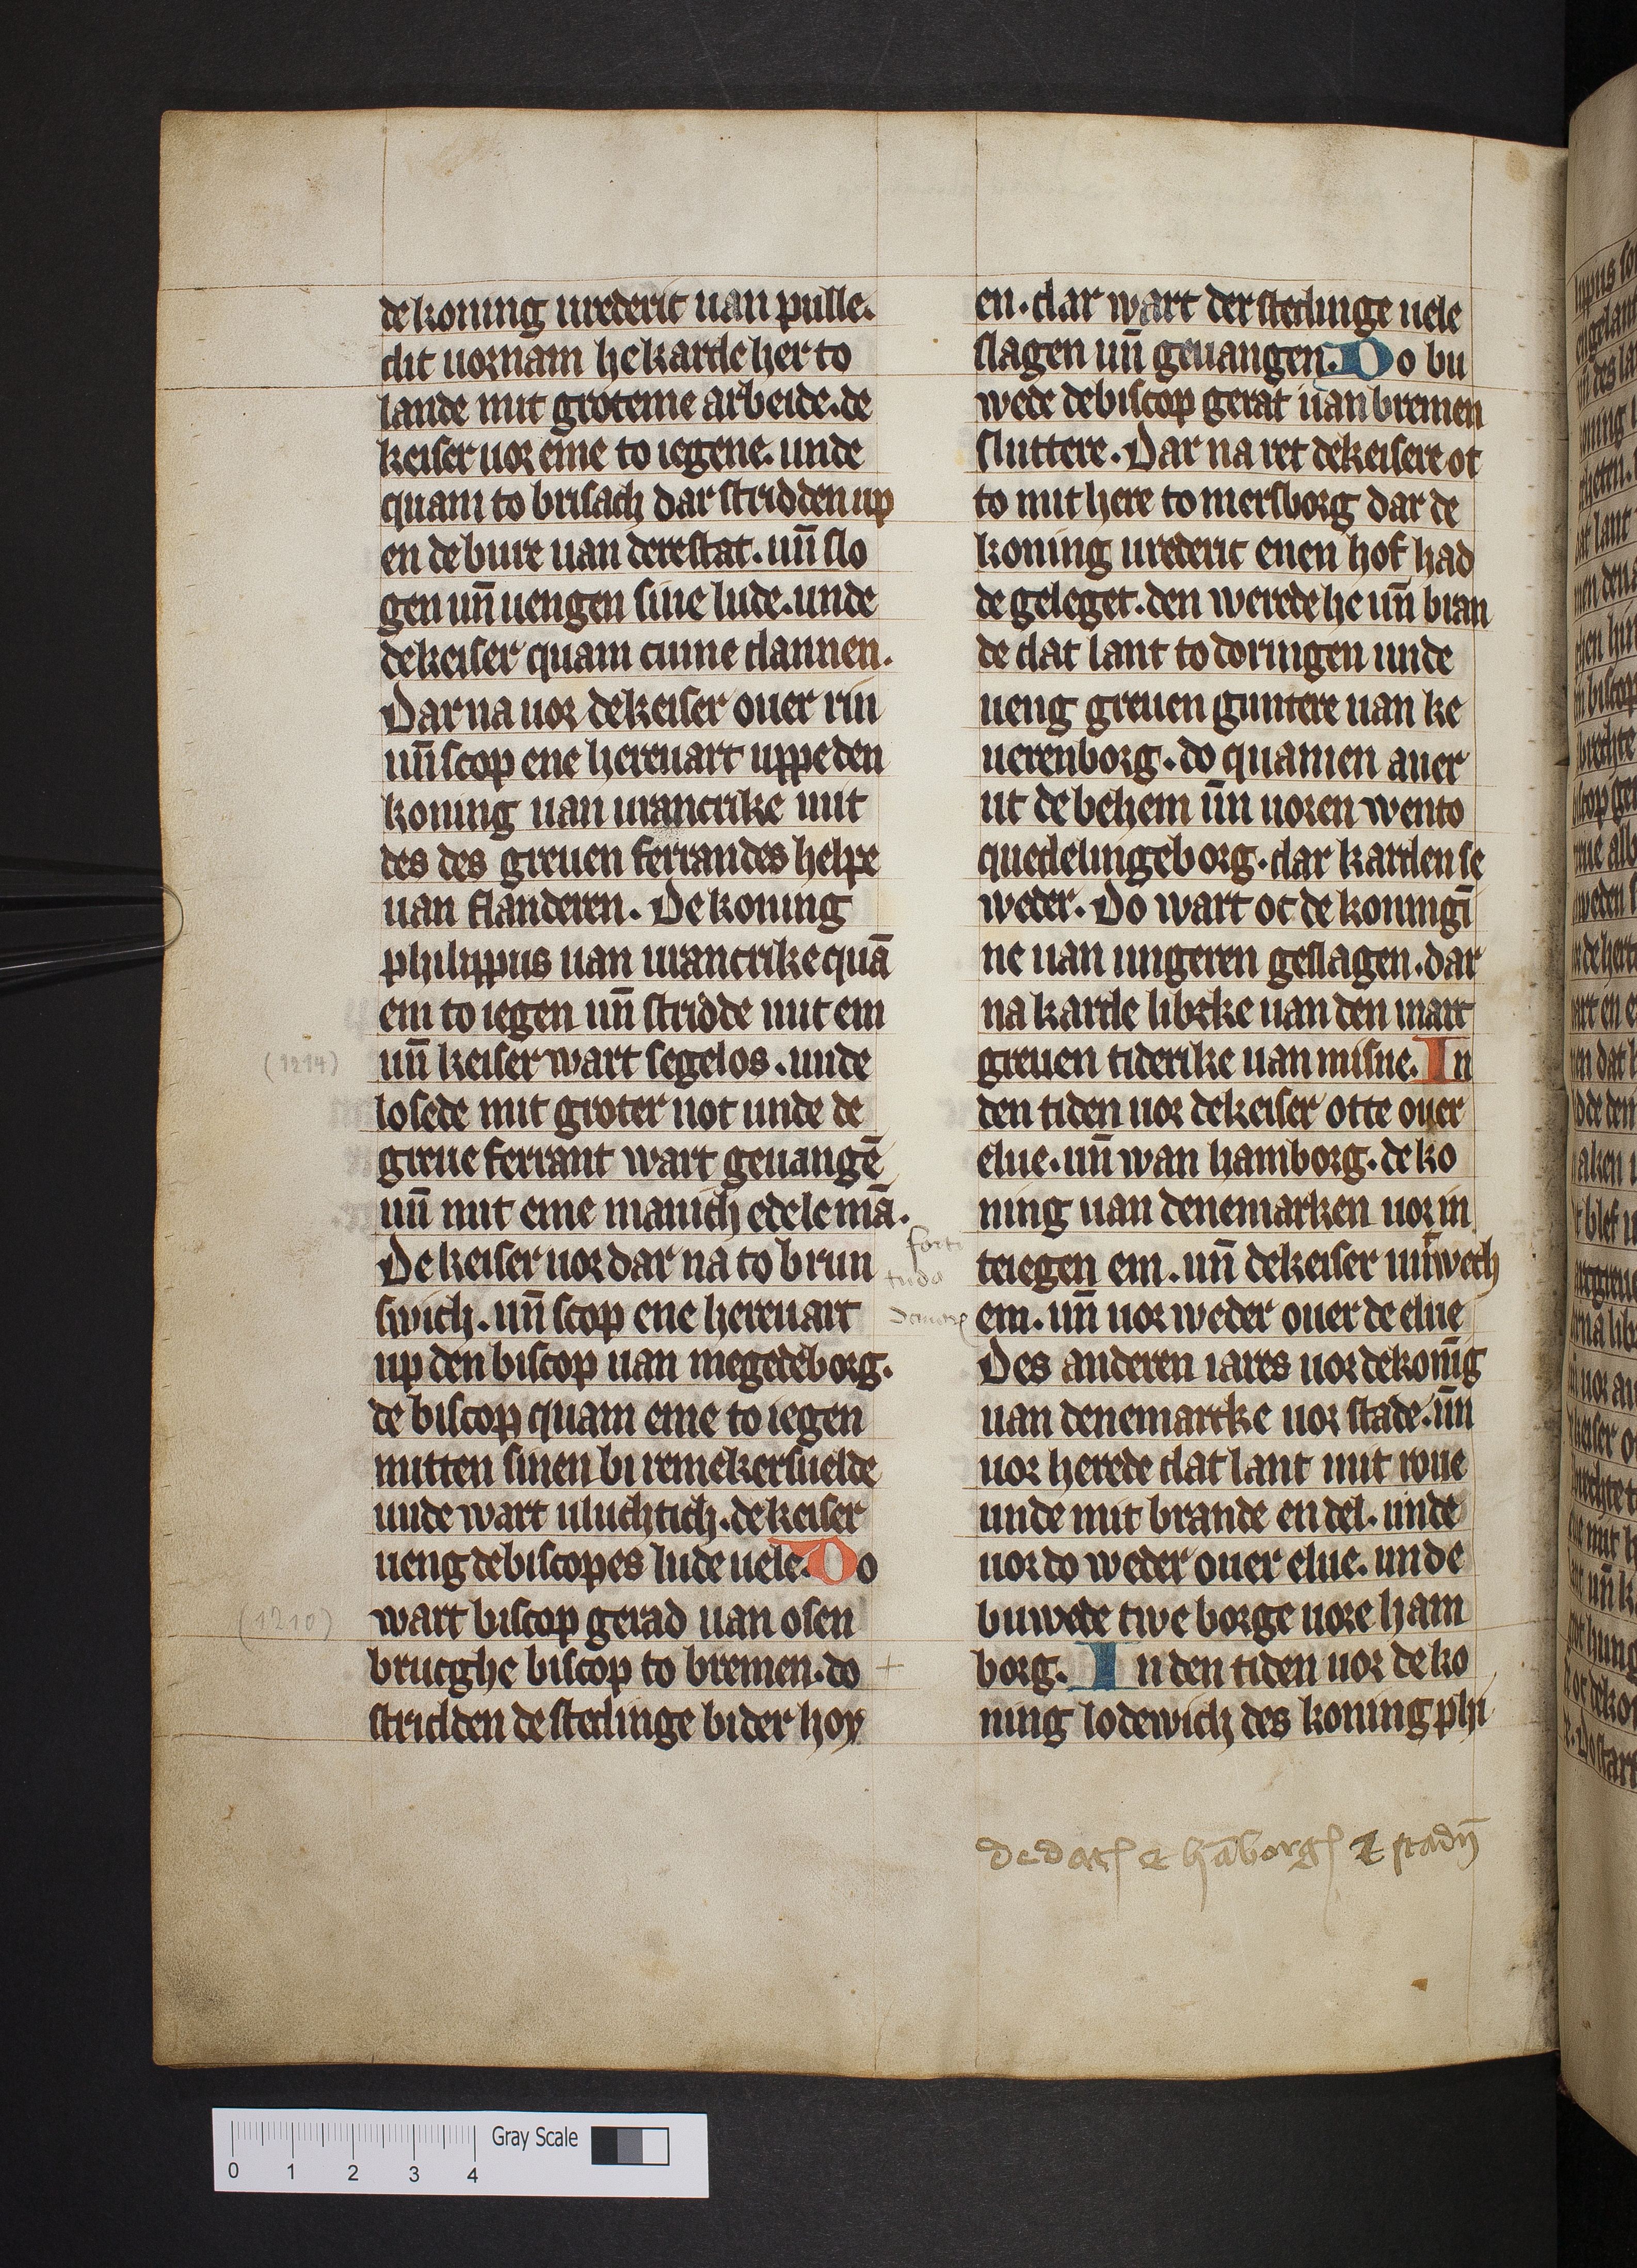 de koning urederic uan pulle.
dit uornam he karde her to
lande mit groteme arbeide. de
keiser uor eme to iegene. unde
quam to brisach dar stridden up
en de bure uan dere stat. un̄ slo
gen un̄ uengen sine lude. unde
de keiser quam cume dannen.
Dar na uor de keiser ouer rin
un̄ scop ene hereuart uppe den
koning uan urancrike mit
des des greuen ferrandes helpe
uan flanderen. De koning
philippus uan urancrike quā
em to iegen un̄ stridde mit em
(1214)
un̄ keiser wart segelos. unde
losede mit groter not unde de
greue ferrant wart geuangē
un̄ mit eme manich edele mā.
De keiser uor dar na to brun
swich. un̄ scop ene hereuart
up den biscop uan megedeborg.
de biscop quam eme to iegen
mitten sinen bi remekersuelde
unde wart uluchtich. de keiser
ueng de biscopes lude uele. Do
(1210)
wart biscop gerad uan osen
brucghe biscop to bremen. do +
stridden de stedinge bi der hoy
en. dar wart der stedinge uele
slagen un̄ geuangen. Do bu
wede de biscop gerat uan bremen
sluttere. Dar na ret de keisere ot
to mit here to mersborg dar de
koning urederic enen hof had
de geleget. den werede he un̄ bran
de dat lant to doringen unde
ueng greuen guntere uan ke
uerenborg. do quamen auer
ut de behem un̄ uoren wento
quedelingeborg. dar karden se
weder. Do wart oc de koningī
ne uan ungeren geslagen. dar
na karde librke uan den marc
greuen tiderike uan misne. In
den tiden uor de keiser otte ouer
elue. un̄ wan hamborg. de ko
ning uan denemarken uor in
teiegen em. un̄ de keiser untwech
em. un̄ uor weder ouer de elue
Des anderen iares uor de konīg
uan denemarcke uor stade. un̄
uor herede dat lant mit roue
unde mit brande en del. unde
uor do weder ouer elue. unde
buwede twe borge uore ham
borg. In den tiden uor de ko
ning lodewich des koning phi
forti
tudo
de dac et hāborg et stadn̄
Gray Scale
0 1 2 3 4